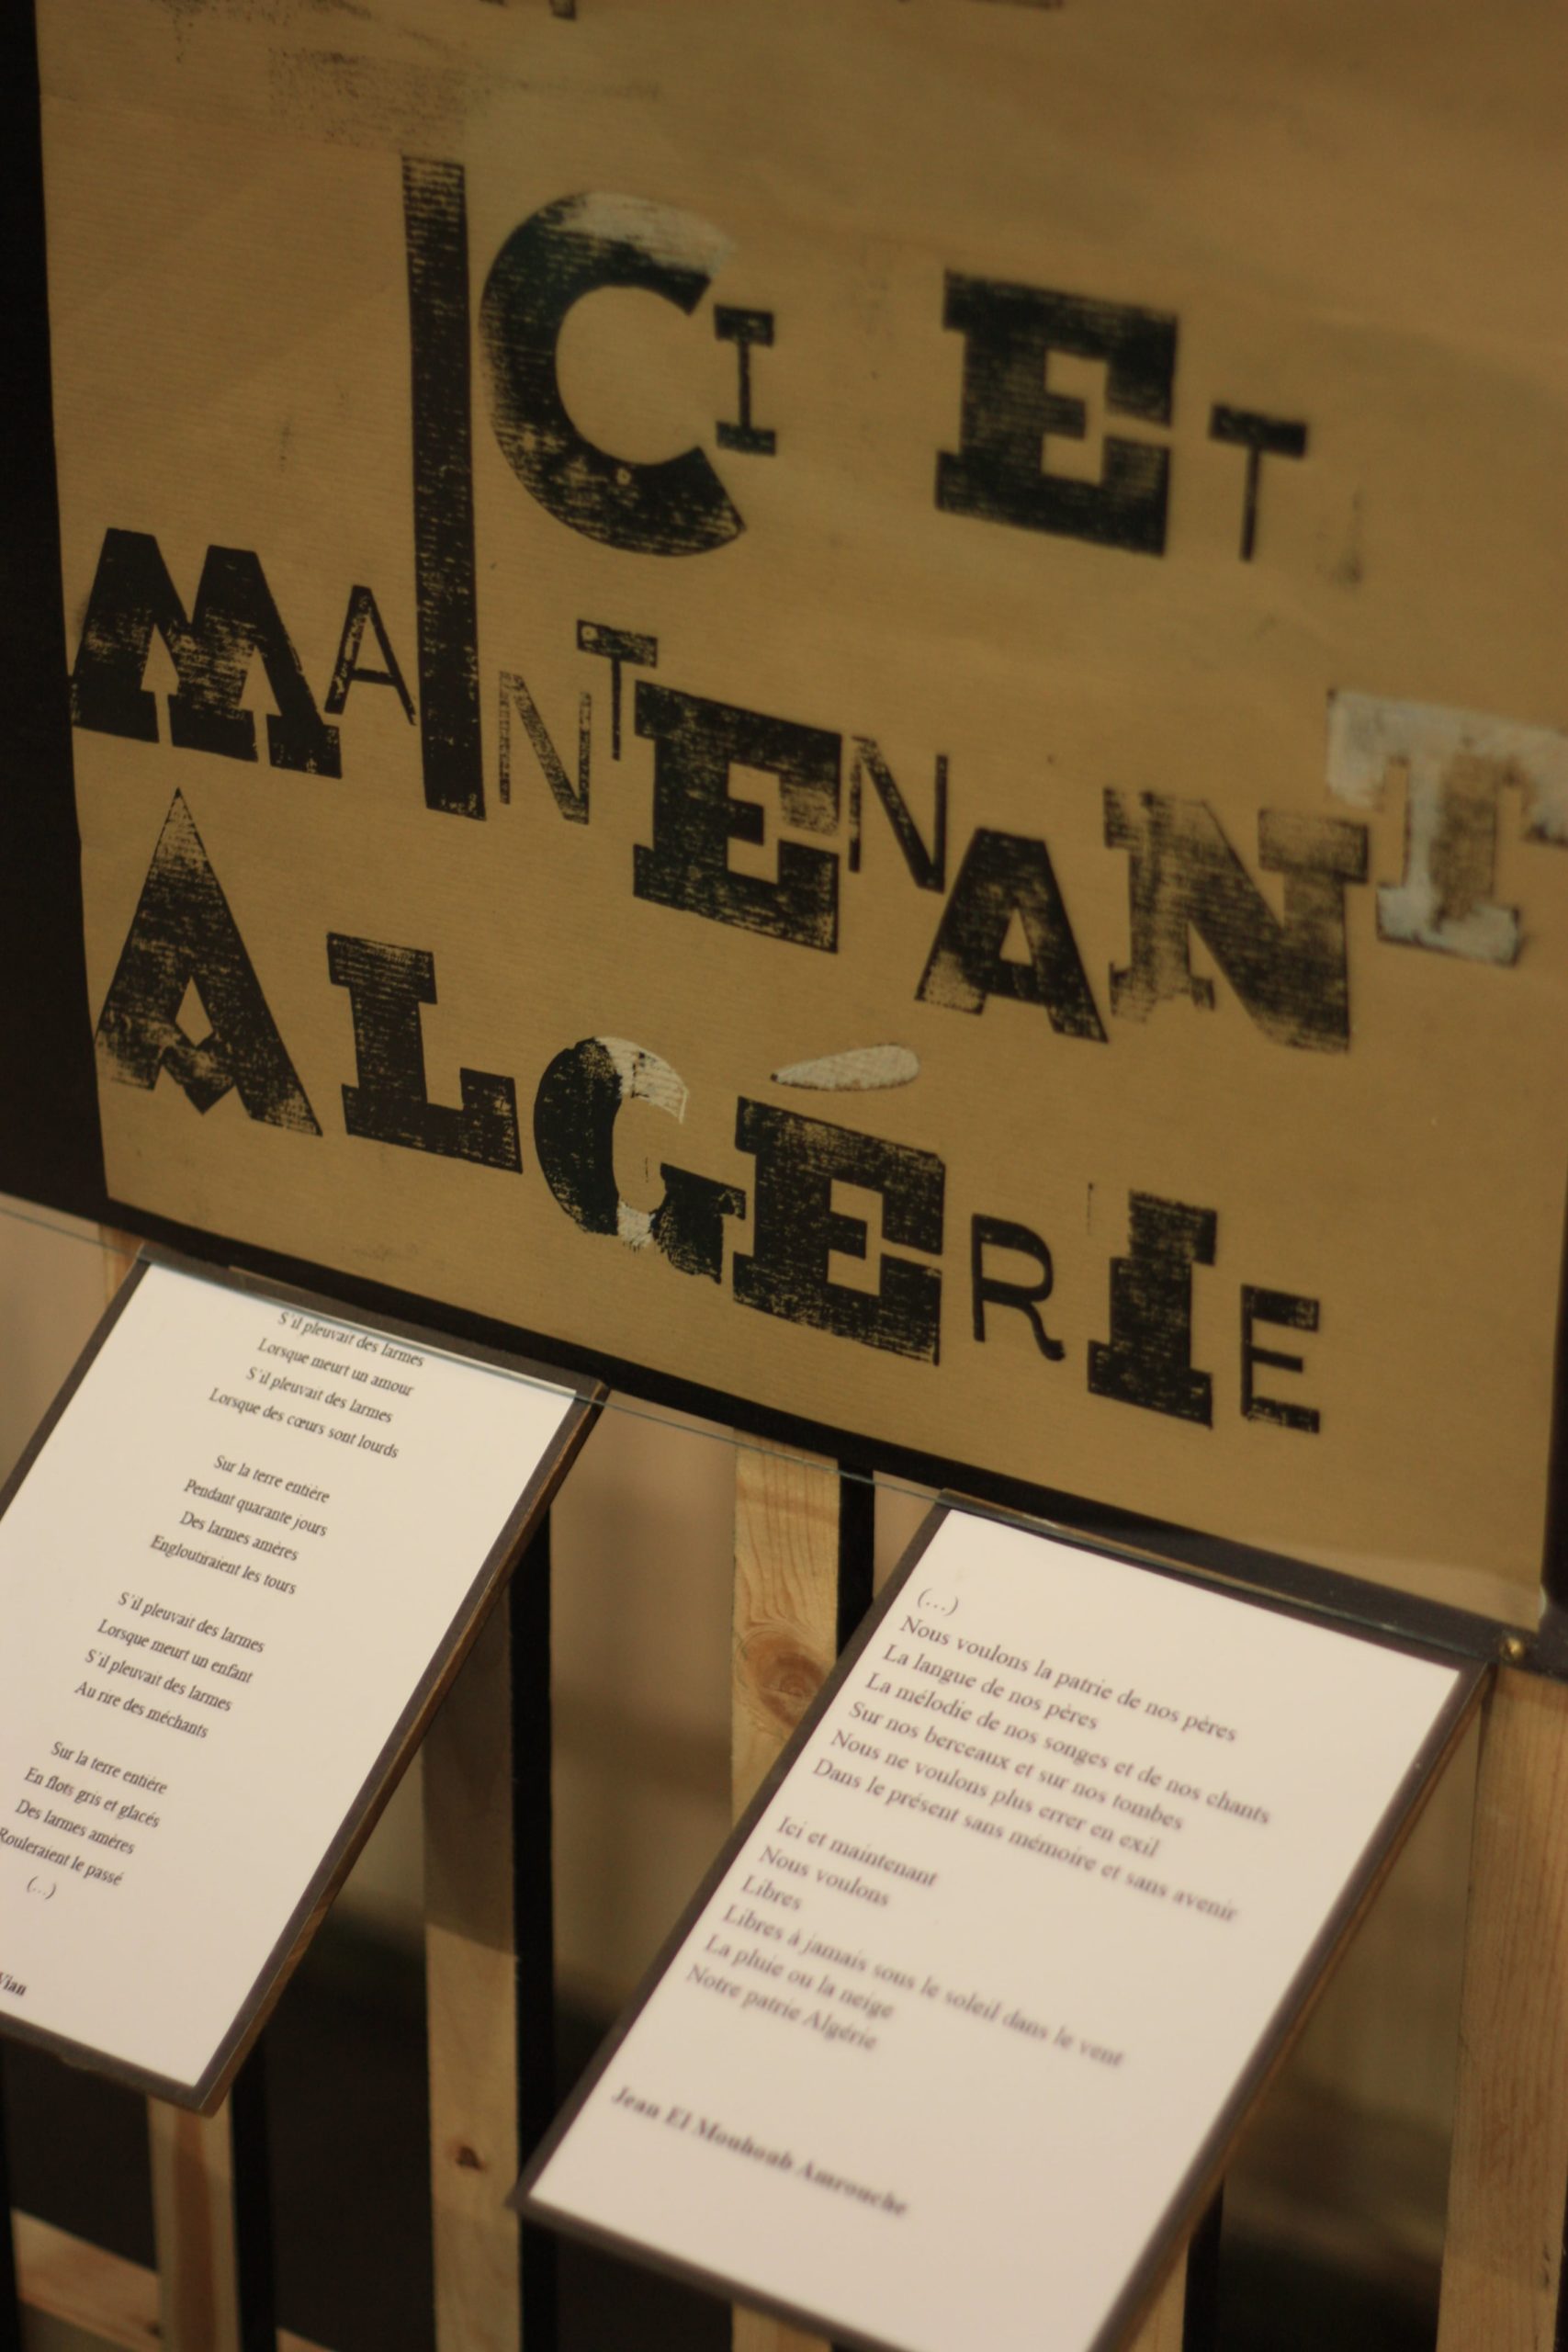 ICI ET
MAINTENANT
ALGÉRIE
S'il pleuvait des larmes
Lorsque meurt un amour
S'il pleuvait des larmes
Lorsque des cœurs sont lourds
Sur la terre entière
Pendant quarante jours
Des larmes amères
Engloutiraient les tours
S'il pleuvait des larmes
Lorsque meurt un enfant
S'il pleuvait des larmes
Au rire des méchants
Sur la terre entière
En flots gris et glacés
Des larmes amères
Rouleraient le passé
(...)
Vian
(...)
Nous voulons la patrie de nos pères
La langue de nos pères
La mélodie de nos songes et de nos chants
Sur nos berceaux et sur nos tombes
Nous ne voulons plus errer en exil
Dans le présent sans mémoire et sans avenir
Ici et maintenant
Nous voulons
Libres
Libres à jamais sous le soleil dans le vent
La pluie ou la neige
Notre patrie Algérie
Jean El Mouhoub Amrouche